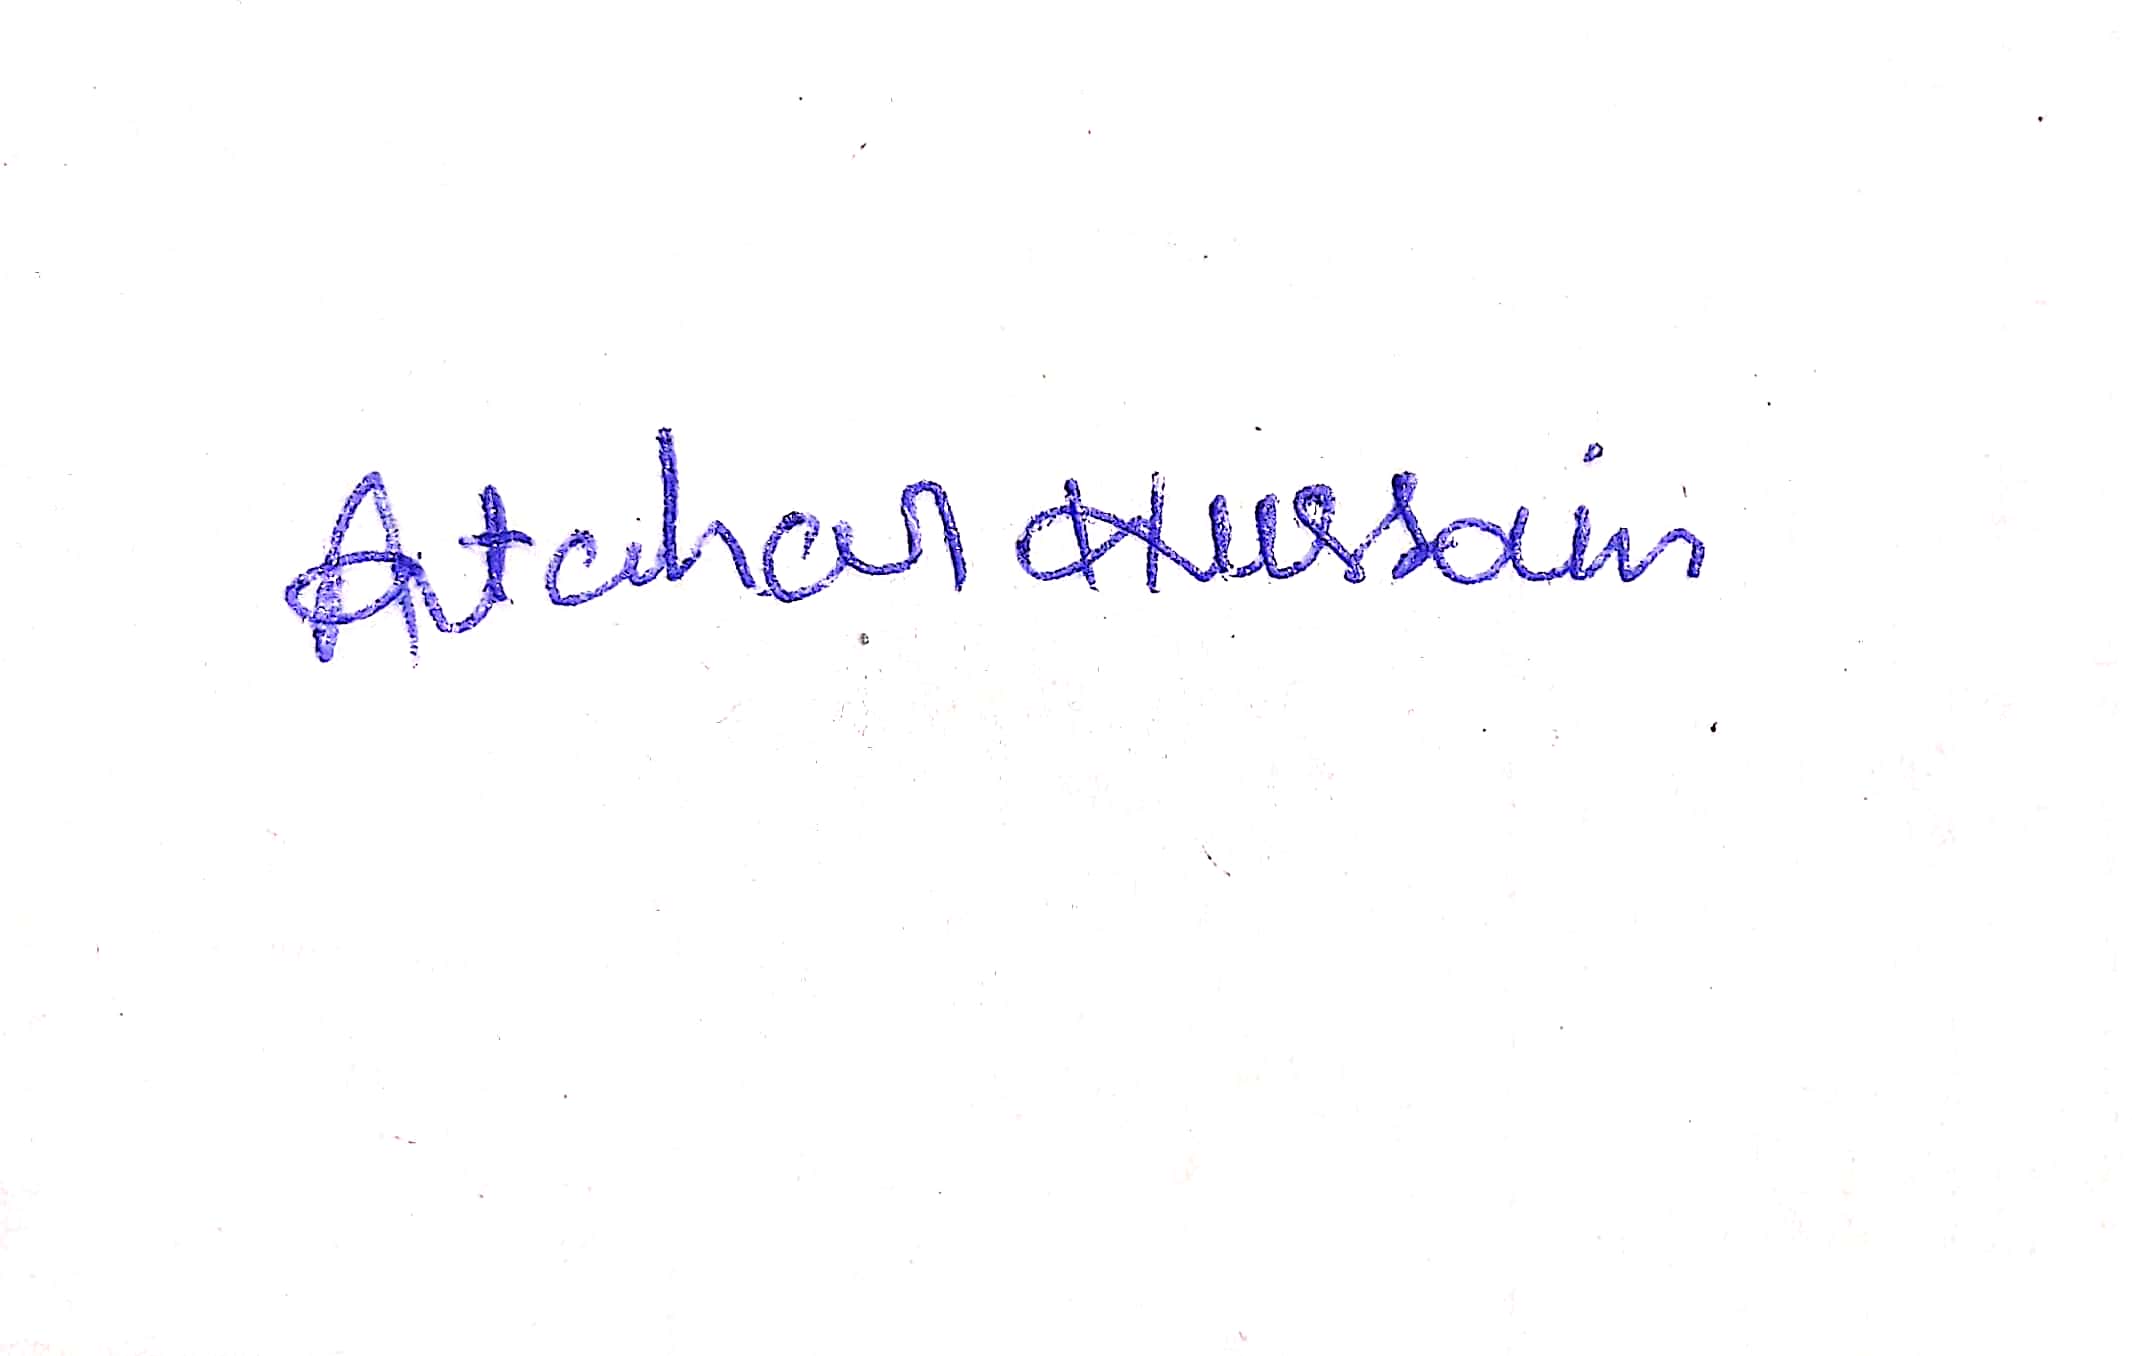 Atahar Hussain